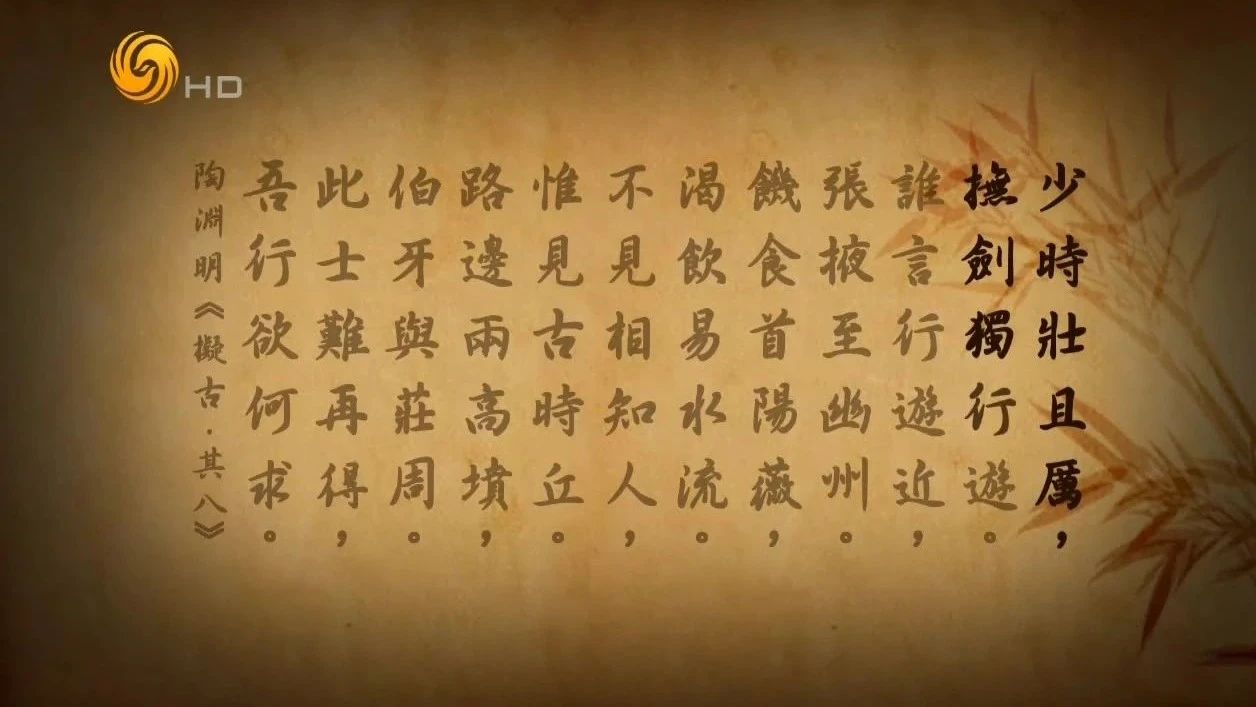 HD
少時壯且厲，
撫劍獨行遊。
誰言行遊近，
張掖至幽州。
饑食首陽薇，
渴飲易水流。
不見相知人，
惟見古時丘。
路邊兩高墳，
伯牙與莊周。
此士難再得，
吾行欲何求。
陶淵明《擬古·其八》